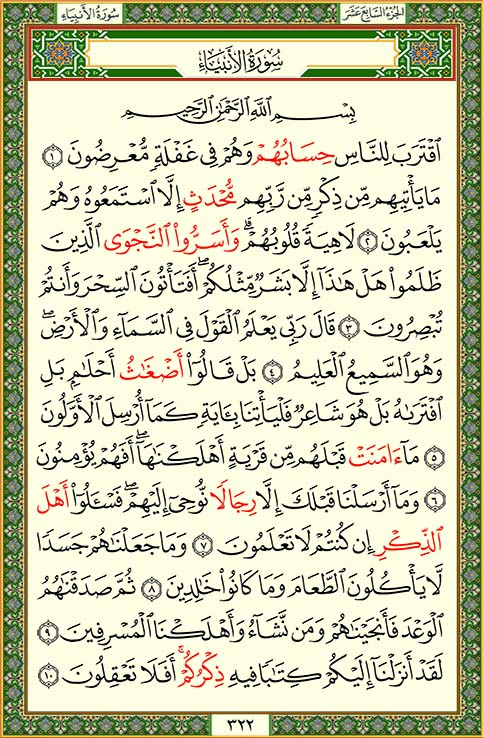 سُورَةُ الأَنبِيَاءِ
الجُزءُ السَّابِعَ عَشَرَ
سُورَةُ الأَنبِيَاءِ
بِسْمِ ٱللَّهِ ٱلرَّحْمَٰنِ ٱلرَّحِيمِ
ٱقْتَرَبَ لِلنَّاسِ حِسَابُهُمْ وَهُمْ فِى غَفْلَةٍ مُّعْرِضُونَ ١
مَا يَأْتِيهِم مِّن ذِكْرٍ مِّن رَّبِّهِم مُّحْدَثٍ إِلَّا ٱسْتَمَعُوهُ وَهُمْ
يَلْعَبُونَ ٢ لَاهِيَةً قُلُوبُهُمْ ۗ وَأَسَرُّوا۟ ٱلنَّجْوَى ٱلَّذِينَ
ظَلَمُوا۟ هَلْ هَٰذَآ إِلَّا بَشَرٌ مِّثْلُكُمْ ۖ أَفَتَأْتُونَ ٱلسِّحْرَ وَأَنتُمْ
تُبْصِرُونَ ٣ قَالَ رَبِّى يَعْلَمُ ٱلْقَوْلَ فِى ٱلسَّمَآءِ وَٱلْأَرْضِ ۖ
وَهُوَ ٱلسَّمِيعُ ٱلْعَلِيمُ ٤ بَلْ قَالُوٓا۟ أَضْغَٰثُ أَحْلَٰمٍۭ بَلِ
ٱفْتَرَىٰهُ بَلْ هُوَ شَاعِرٌ فَلْيَأْتِنَا بِـَٔايَةٍ كَمَآ أُرْسِلَ ٱلْأَوَّلُونَ
٥ مَآ ءَامَنَتْ قَبْلَهُم مِّن قَرْيَةٍ أَهْلَكْنَٰهَآ ۖ أَفَهُمْ يُؤْمِنُونَ
٦ وَمَآ أَرْسَلْنَا قَبْلَكَ إِلَّا رِجَالًا نُّوحِىٓ إِلَيْهِمْ ۖ فَسْـَٔلُوٓا۟ أَهْلَ
ٱلذِّكْرِ إِن كُنتُمْ لَا تَعْلَمُونَ ٧ وَمَا جَعَلْنَٰهُمْ جَسَدًا
لَّا يَأْكُلُونَ ٱلطَّعَامَ وَمَا كَانُوا۟ خَٰلِدِينَ ٨ ثُمَّ صَدَقْنَٰهُمُ
ٱلْوَعْدَ فَأَنجَيْنَٰهُمْ وَمَن نَّشَآءُ وَأَهْلَكْنَا ٱلْمُسْرِفِينَ ٩
لَقَدْ أَنزَلْنَآ إِلَيْكُمْ كِتَٰبًا فِيهِ ذِكْرُكُمْ ۖ أَفَلَا تَعْقِلُونَ ١٠
٣٢٢